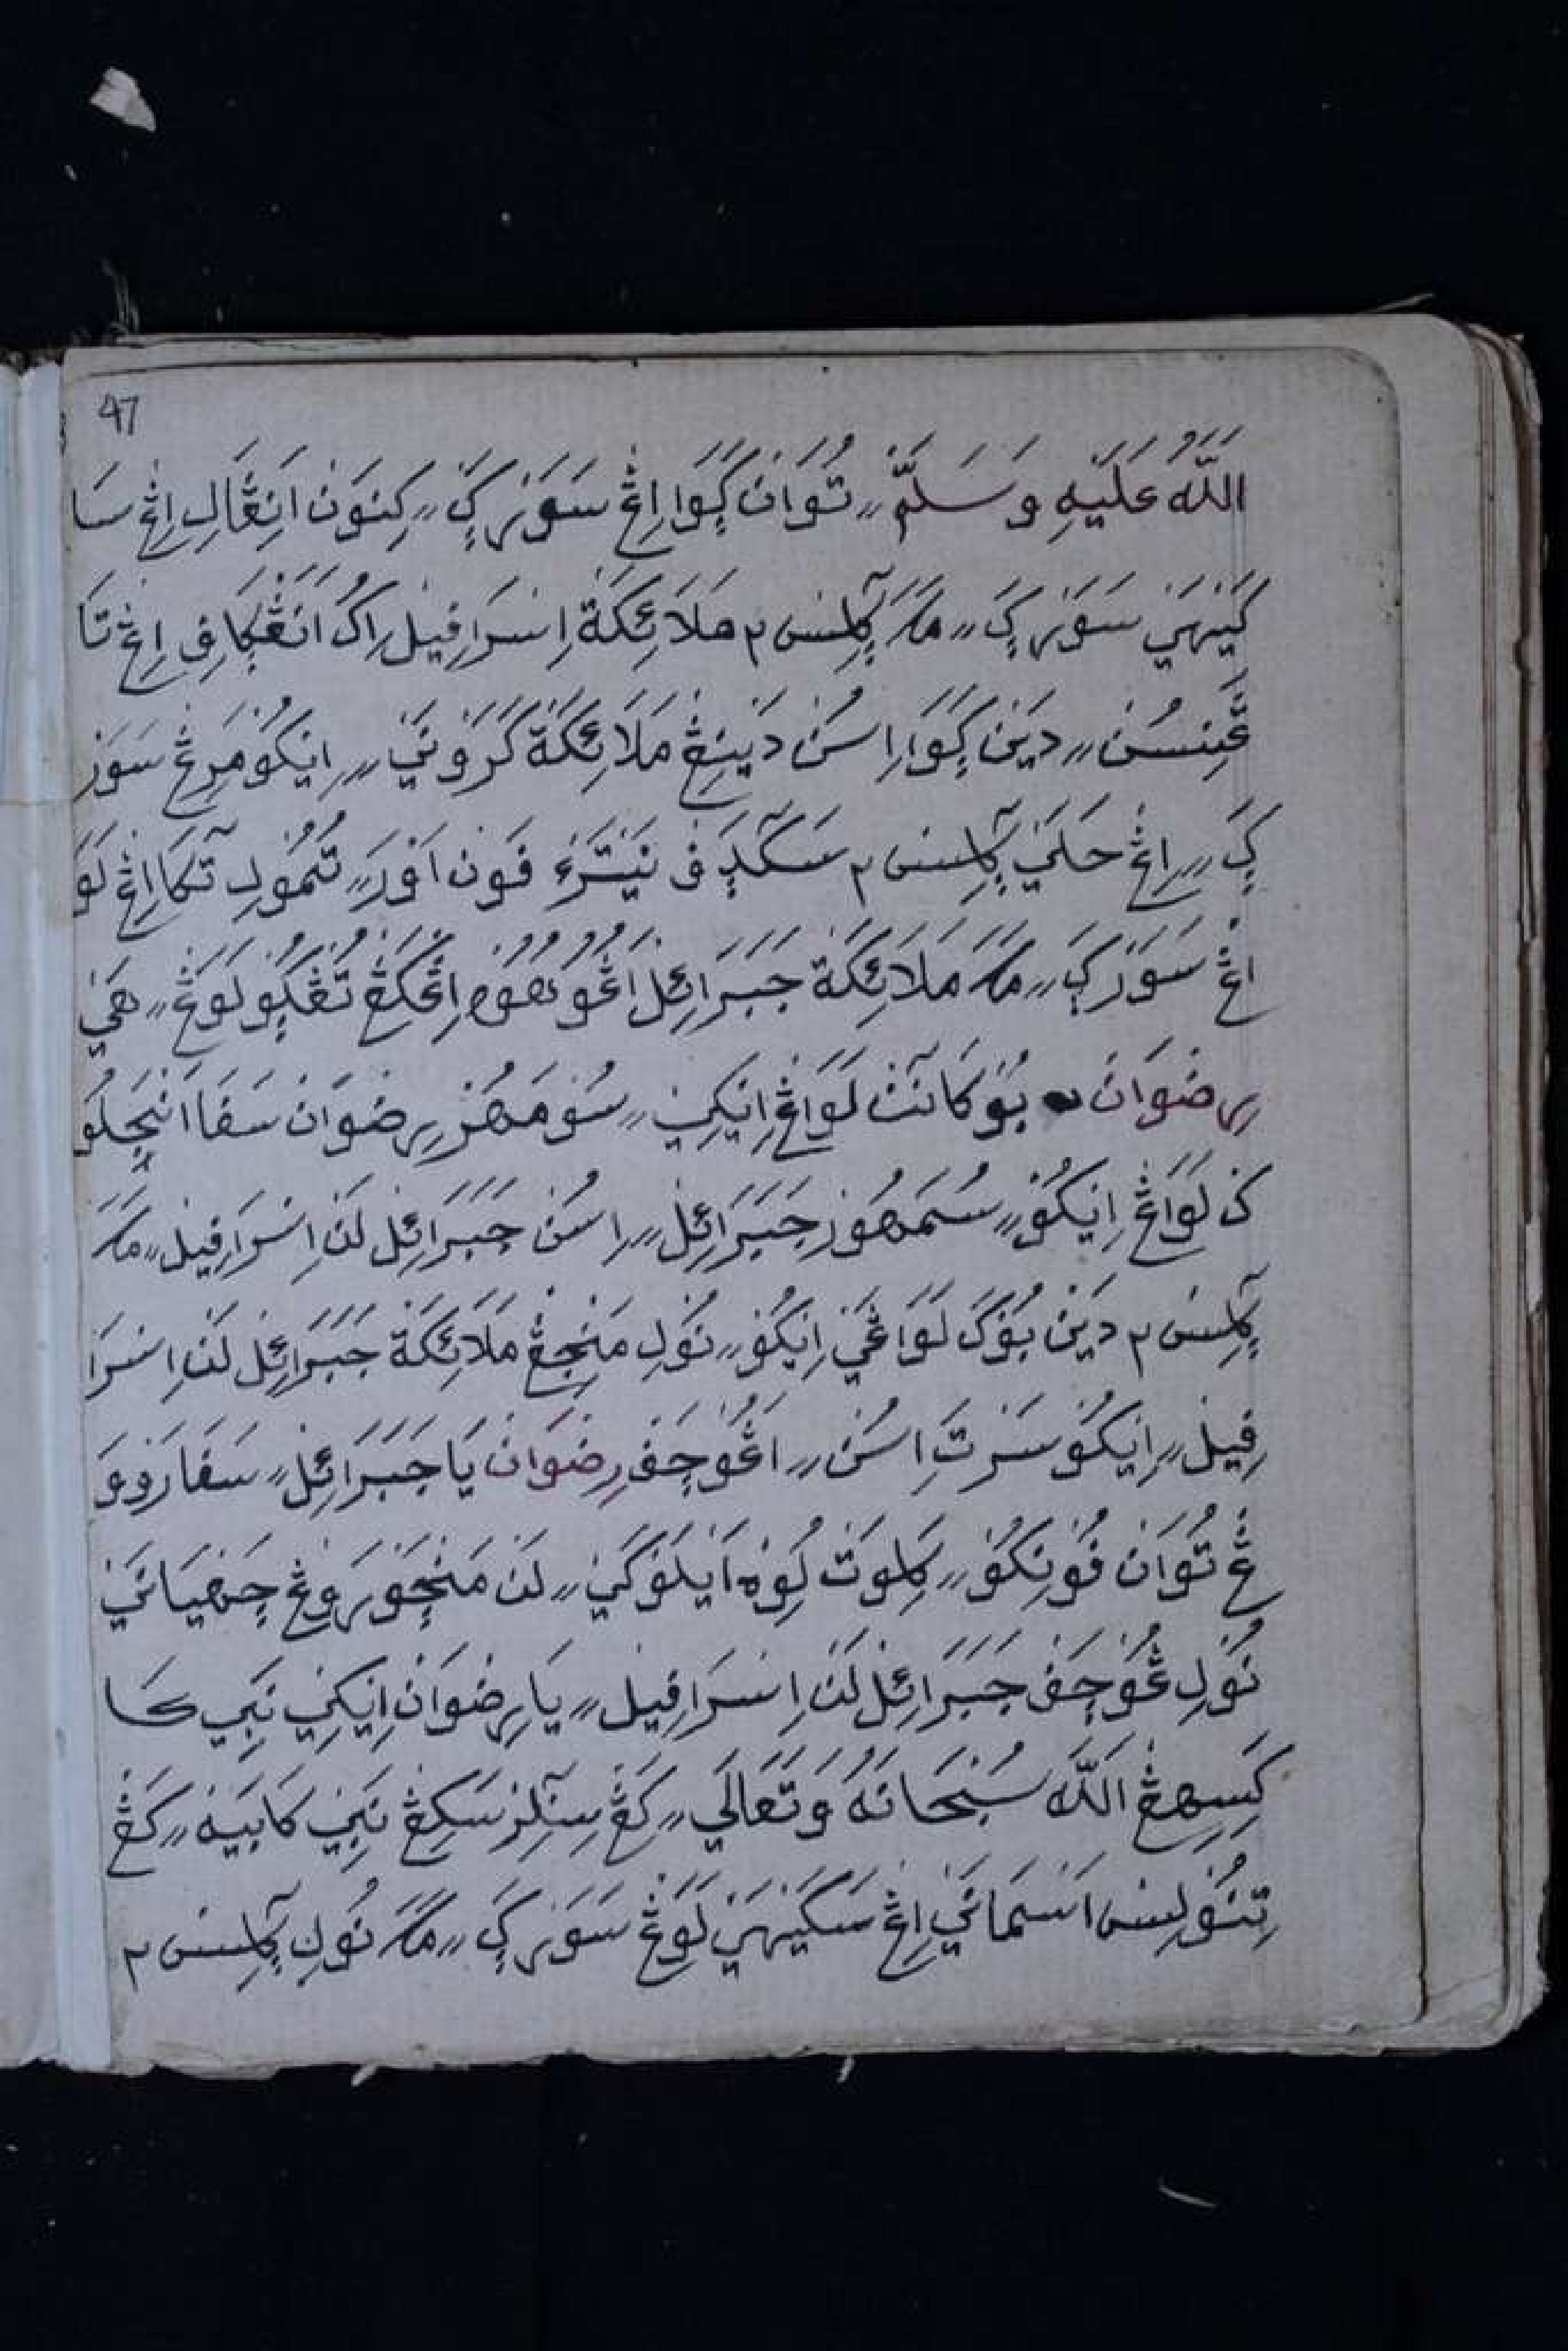 47
اللّٰهُ عَلَيْهِ وَسَلَّمْ ״ تُوَانْ كٓوَا اِڠْ سَوَرْكٓ ״ كِنَوَنْ اَنِڠَالِ اِڠْ سَا
كَيْهَيْ سَوَرْكَ ״ مَكَ كٓلِسْ۲ مَلَائِكَةْ اِسْرَافِيْلْ اَكُ اَنَڠْكٓافِ اِڠْ تَا
ڠَنِسُنْ ״ دَيْنْ كٓوَا اِسُنْ دَيْنِڠْ مَلَائِكَةْ كَرَوْنَيْ ״ اِيْكُوْ مَرِڠْ سَوَرْ
كٓ ״ اِڠْ حَلَيْ كٓلِسْ۲ سَكٓدٓفْ نَيْتْرَءْ فَوْنْ اَوْرَ ״ تُمُوْلِ تٓكَا اِڠْ لَوَ
اڠْ سَوَرْكٓ ״ مَكَ مَلَائِكَةْ جَبَرَائِلْ اَڠُوْنْهُوْهْ اِڠْكَڠْ تُڠْكٓوْ لَوَڠْ ״ هَيْ
رِضْوَانْ بُوْكَانَنْ لَوَاڠْ اِيْكِيْ ״ سُوْمَهُرْ رِضْوَانْ سَفَا اَنْجَلُوْ
كْ لَوَاڠْ اِيْكُوْ ״ سُمَهُوْرْ جَبَرَائِلْ ״ اِسُنْ جَبَرَائِلْ لَنْ اِسْرَافِيْلْ ״ مَكَ
كٓلِسْ۲ دَيْنْ بُوْكَ لَوَاڠَيْ اِيْكُوْ ״ نُوْلِ مَنْجِڠْ مَلَائِكَةْ جَبَرَائِلْ لَنْ اِسْرَا
فِيْلْ ״ اِيْكُوْ سَرْتَ اِسُنْ ״ اَڠُوْجَفْ رِضْوَانْ يَا جَبَرَائِلْ ״ سَفَا رَوْوَ
ڠْ تُوَانْ فُوْنِكُوْ ״ كٓلِوَتْ لُوِهْ اَيْلَوْكَيْ ״ لَنْ مَنْچَوْرَوْڠْ چَهْيَانَيْ
نُوْلِ ڠُوْجَفْ جَبَرَائِلْ لَنْ اِسْرَافِيْلْ ״ يَا رِضْوَانْ اِيْكِيْ نَبِيْ كَا
كَسِهِڠْ اللّٰهْ سُبْحَانَهُ وَتَعَالَيْ ״ كَڠْ سِنٓلِرْ سَكِڠْ نَبِيْ كَابَيْهْ ״ كَڠْ
تِنُوْلِسْ اَسْمَانَيْ اِڠْ سَكَيْهَيْ لَوَڠْ سَوَرْكٓ ״ مَكَ نُوْلِ كٓلِسْ۲